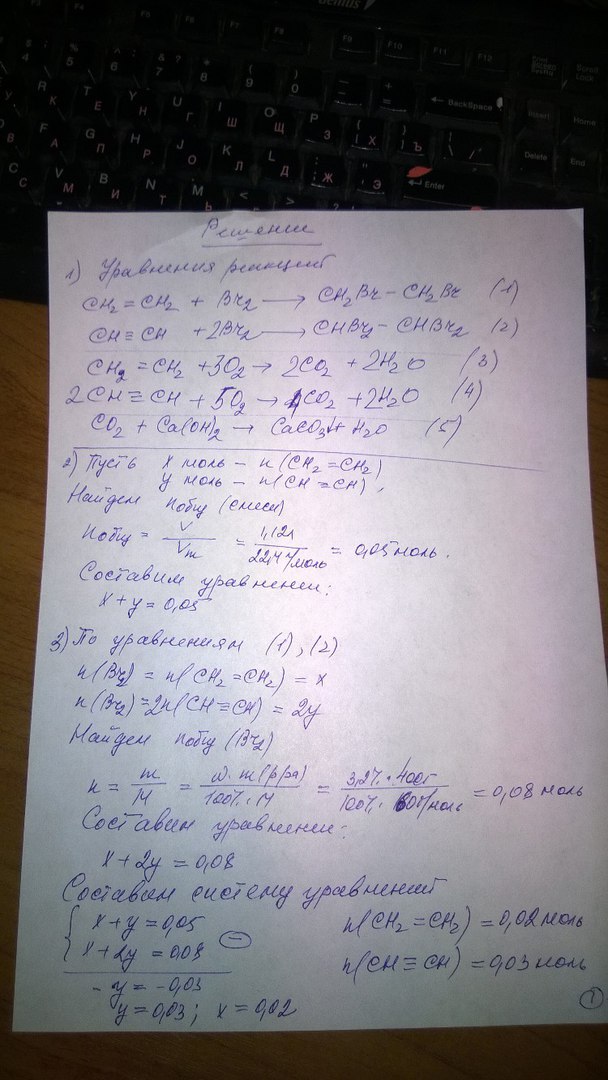 Решение
1) Уравнения реакций
CH₂=CH₂ + Br₂ ⟶ CH₂Br–CH₂Br (1)
CH≡CH + 2Br₂ ⟶ CHBr₂–CHBr₂ (2)
CH₂=CH₂ + 3O₂ → 2CO₂ + 2H₂O (3)
2CH≡CH + 5O₂ → 4CO₂ + 2H₂O (4)
CO₂ + Ca(OH)₂ → CaCO₃↓ + H₂O (5)
2) Пусть x моль – n(CH₂=CH₂)
y моль – n(CH≡CH),
Найдем nобщ (смеси)
nобщ = V/Vm = 1,12л/22,4л/моль = 0,05 моль.
Составим уравнение:
x + y = 0,05
3) По уравнениям (1), (2)
n(Br₂) = n(CH₂=CH₂) = x
n(Br₂) = 2n(CH≡CH) = 2y
Найдем nобщ (Br₂)
n = m/M = ω·m(р-ра)/100%·M = 3,2%·400г/100%· г/моль = 0,08 моль
Составим уравнение:
x + 2y = 0,08
Составим систему уравнений
{ x + y = 0,05
x + 2y = 0,08 (–)
-y = -0,03
y = 0,03; x = 0,02
n(CH₂=CH₂) = 0,02 моль
n(CH≡CH) = 0,03 моль
1
BackSpace
Enter
Insert
Home
Delete
End
F9
F10
F11
F12